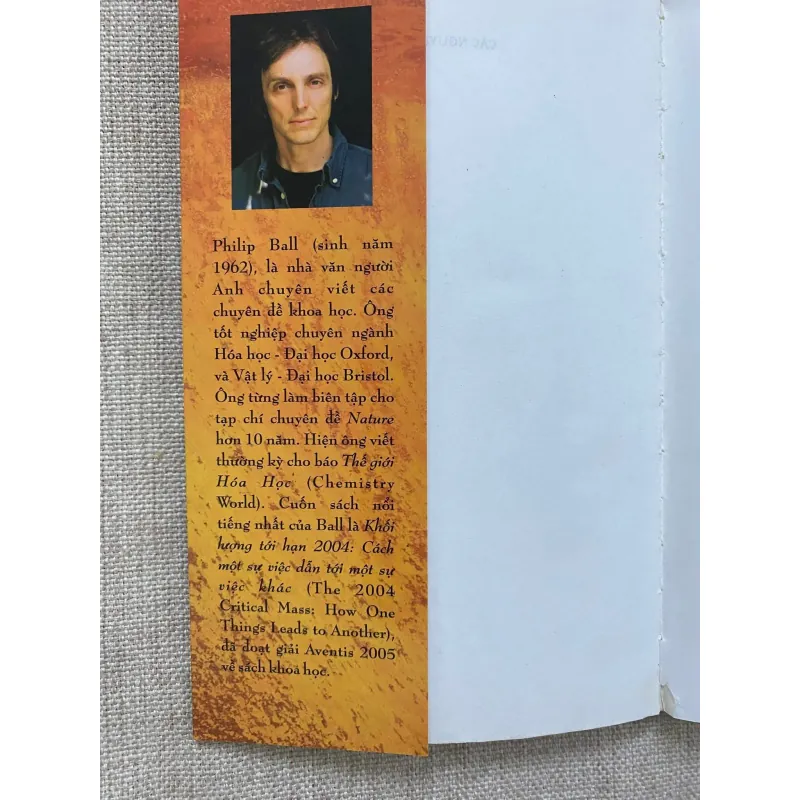 Philip Ball (sinh năm
1962), là nhà văn người
Anh chuyên viết các
chuyên đề khoa học. Ông
tốt nghiệp chuyên ngành
Hóa học - Đại học Oxford,
và Vật lý - Đại học Bristol.
Ông từng làm biên tập cho
tạp chí chuyên đề Nature
hơn 10 năm. Hiện ông viết
thường kỳ cho báo Thế giới
Hóa Học (Chemistry
World). Cuốn sách nổi
tiếng nhất của Ball là Khối
lượng tới hạn 2004: Cách
một sự việc dẫn tới một sự
việc khác (The 2004
Critical Mass: How One
Things Leads to Another),
đã đoạt giải Aventis 2005
về sách khoa học.